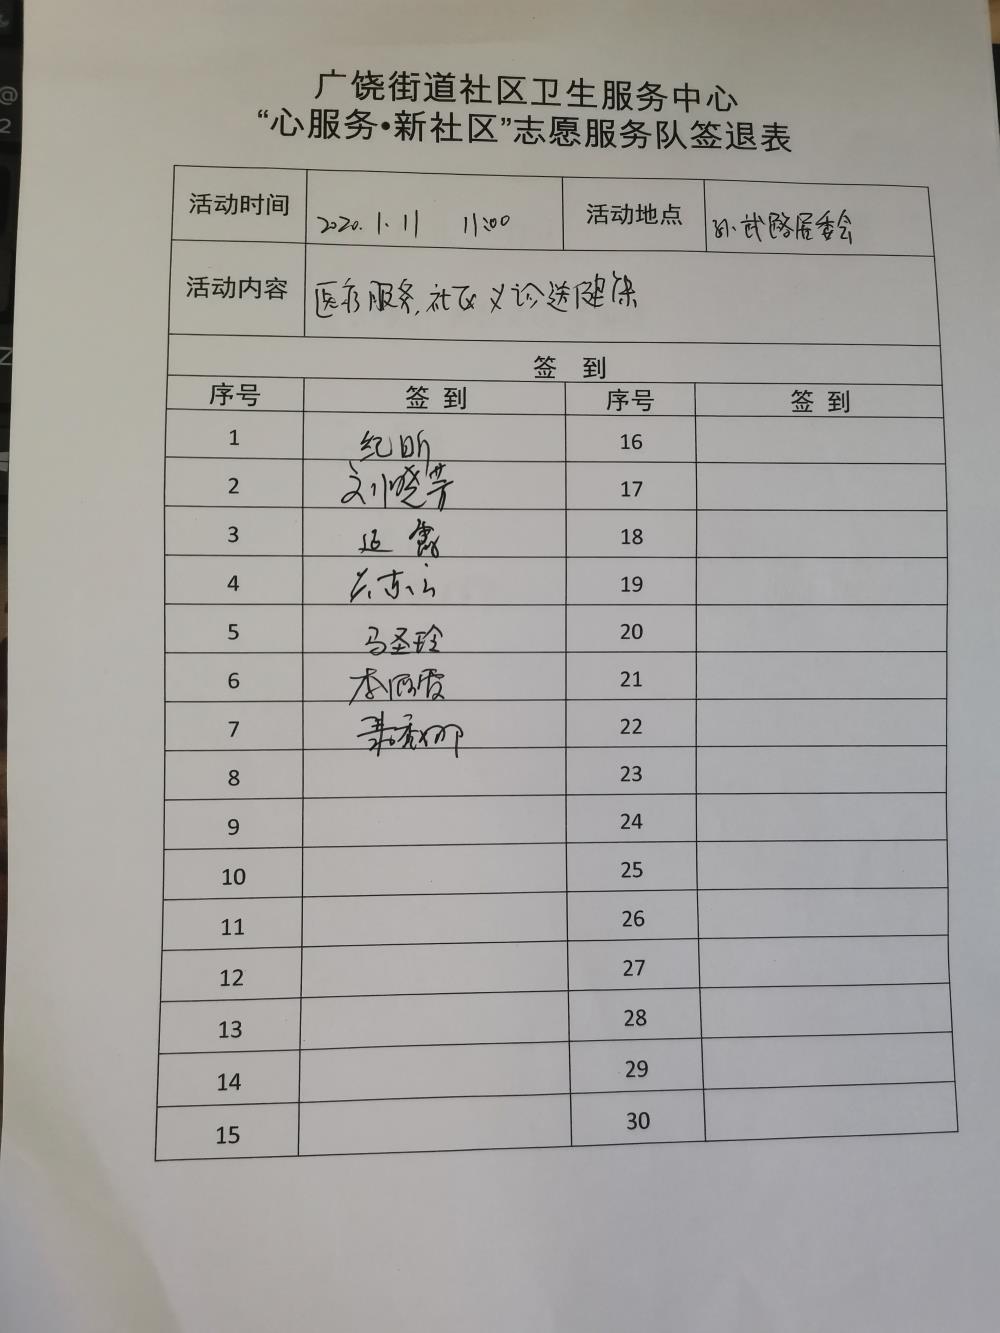 广饶街道社区卫生服务中心
“心服务•新社区”志愿服务队签退表
活动时间 2020.1.11 11:00 活动地点 孙武路居委会
活动内容 医疗服务,社区义诊送健康
签 到
序号 签 到 序号 签 到
1 纪昕 16
2 刘晓芳 17
3 延 18
4 19
5 马圣玲 20
6 李丽霞 21
7 聂秀娜 22
8 23
9 24
10 25
11 26
12 27
13 28
14 29
15 30